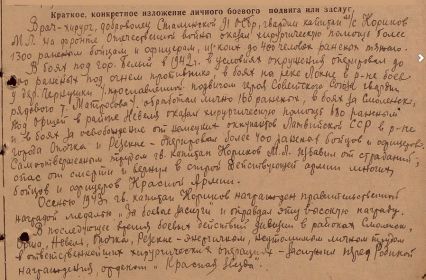 Краткое, конкретное изложение личного боевого подвига или заслуг.
Врач-хирург, доброволец Сталинской 91 гв. бр., гвардии капитан м/с Нориков
М.Л. на фронте Отечественной войны оказал хирургическую помощь более
1300 раненым бойцам и офицерам, из коих до 400 человек раненых тяжело.
В боях под гор. Белый в 1942 г. в условиях окружения оперировал до
раненых под огнем противника, в боях на реке Ловать в р-не боев
у дер. Чернушки, прославленной подвигом героя Советского Союза гвардии
рядового т. Матросова, обработал лично 160 раненых, в боях за Смоленск,
под Оршей в районе Невеля оказал хирургическую помощь 280 раненым
В боях за освобождение от немецких оккупантов Латвийской ССР в р-не
города Опочка и Резекне - оперировал более 400 раненых бойцов и офицеров.
Самоотверженным трудом гв. капитан Нориков М.Л. избавил от страданий,
спас от смерти и вернул в строй действующей армии многих
бойцов и офицеров Красной Армии.
Осенью 1943 г. гв. капитан Нориков награжден правительственной
наградой медалью "За боевые заслуги" и оправдал эту высокую награду.
В последующее время боевых действий дивизии в районах Смоленск,
Орша, Невель, Опочка, Резекне - энергичным, неутомимым личным трудом
в ответственнейших хирургических операциях - заслужил перед Родиной
награждения орденом "Красная Звезда".